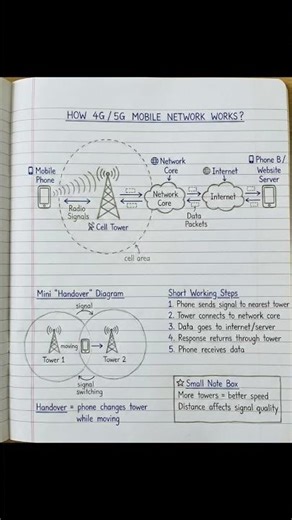 HOW 4G/5G MOBILE NETWORK WORKS?
Mobile
Phone
Radio
Signals
Cell Tower
cell area
Network
Core
Network
Core
Data
Packets
Internet
Internet
Phone B/
Website
Server
Mini "Handover" Diagram
signal
moving
Tower 1
Tower 2
signal
switching
Handover = phone changes tower
while moving
Short Working Steps
1. Phone sends signal to nearest tower
2. Tower connects to network core
3. Data goes to internet/server
4. Response returns through tower
5. Phone receives data
Small Note Box
More towers = better speed
Distance affects signal quality